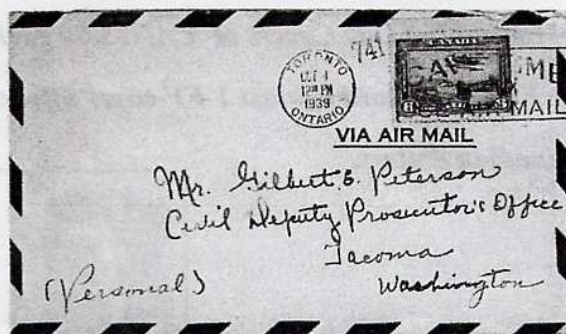 741
TORONTO
OCT 4
12 PM
1939
ONTARIO
CANADA
AIR MAIL
VIA AIR MAIL
Mr. Gilbert E. Peterson
Civil Deputy Prosecutor's Office
Tacoma
Washington
(Personal)